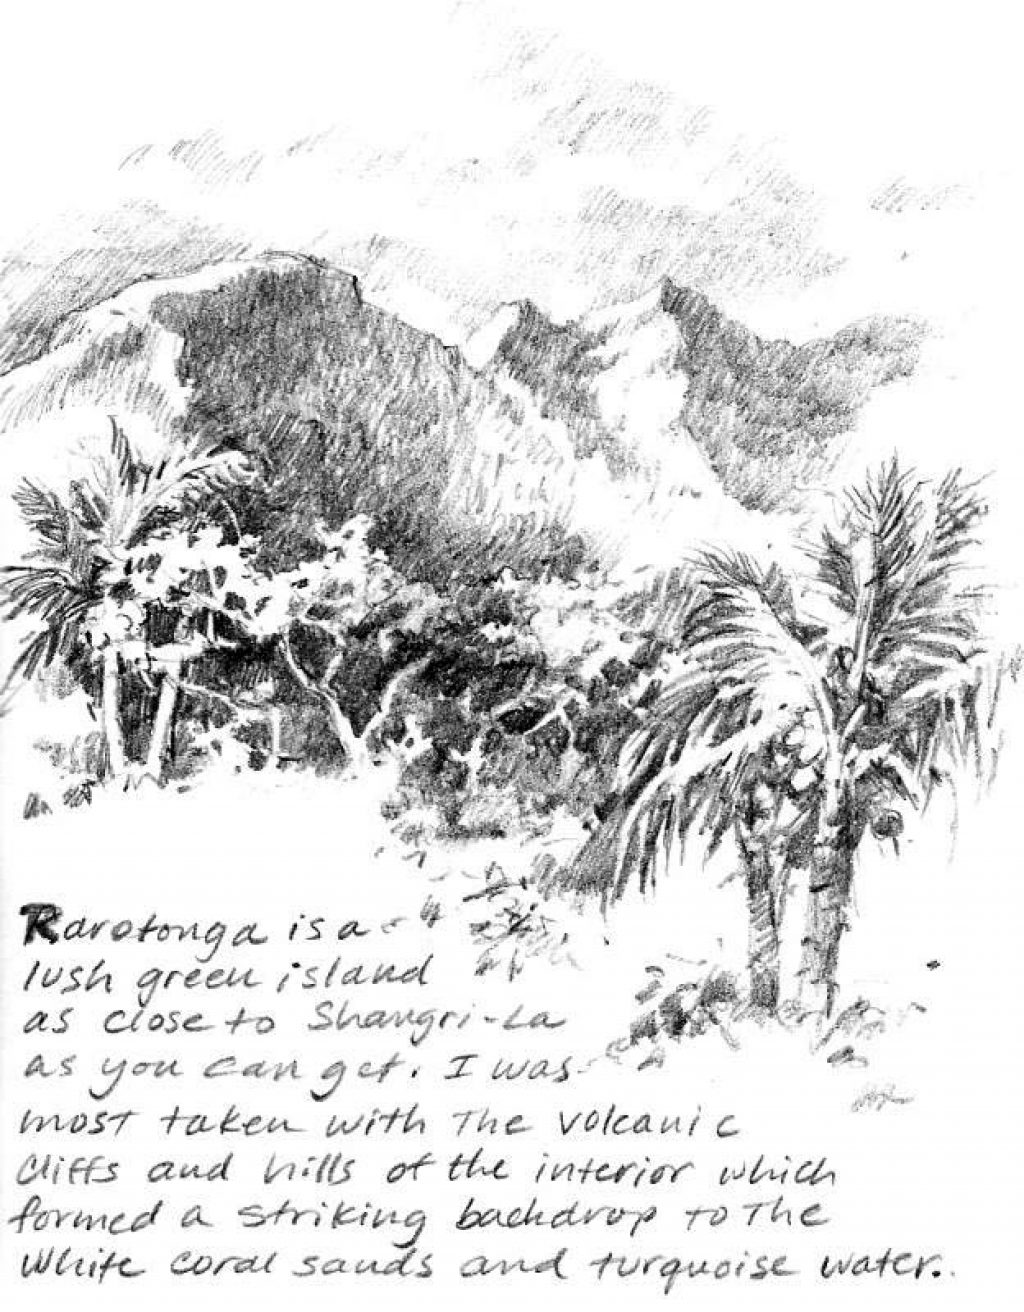 Rarotonga is a
lush green island
as close to Shangri-La
as you can get. I was
most taken with The volcanic
cliffs and hills of the interior which
formed a striking backdrop to The
White coral sands and turquoise water.